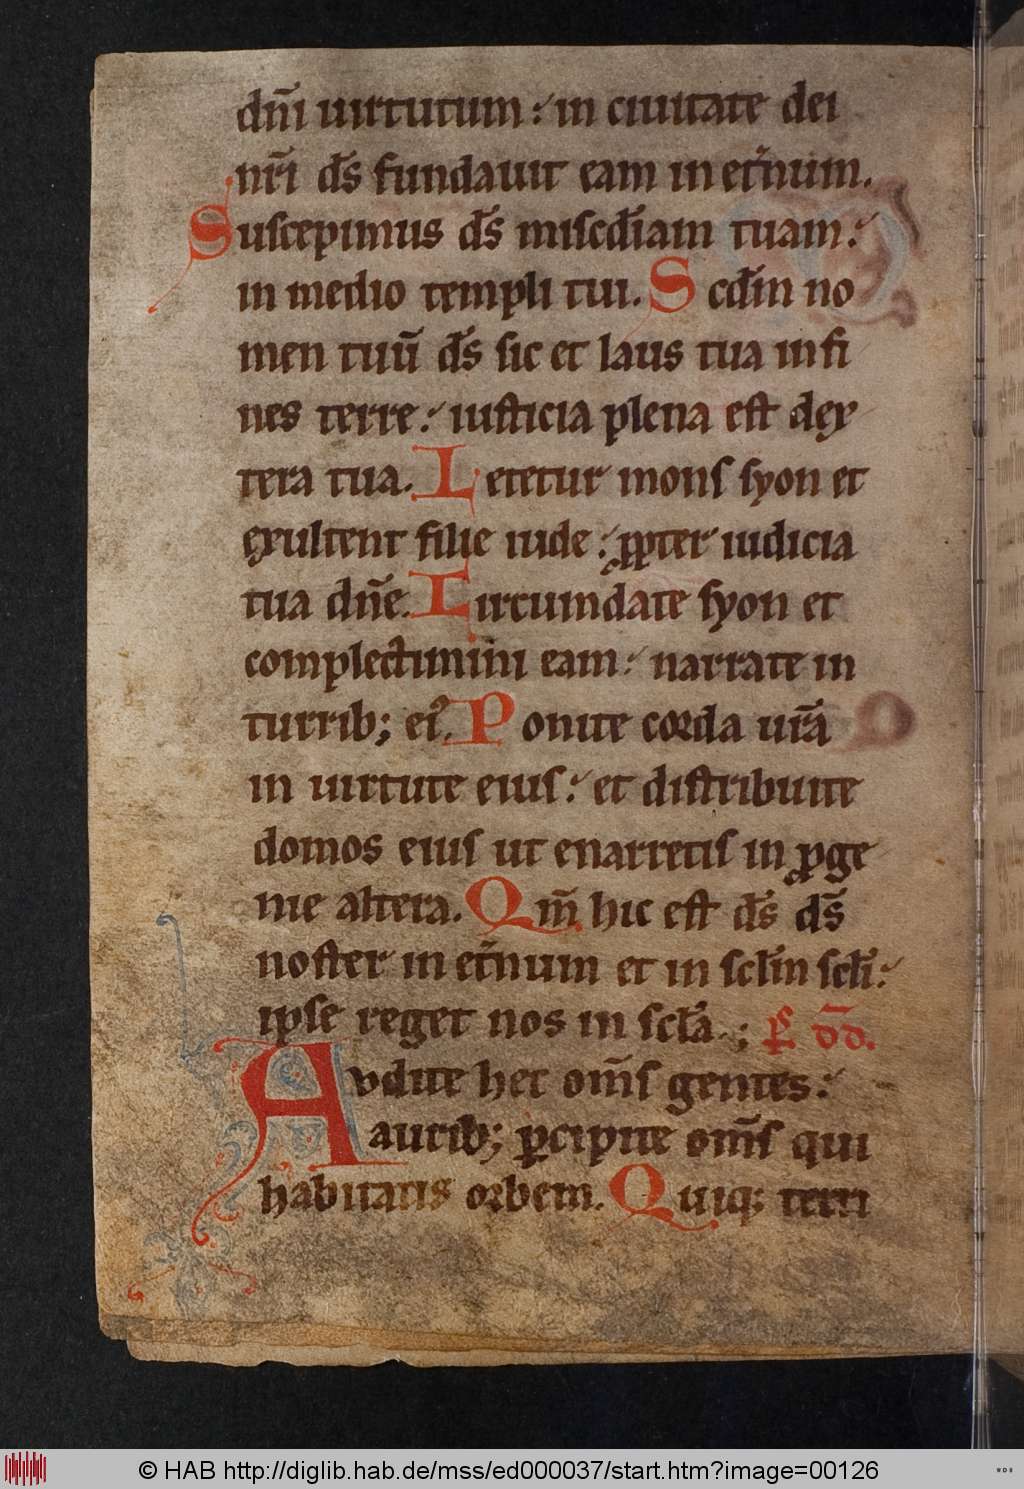 dñi uirtutum: in ciuitate dei
nr̄i ds̄ fundauit eam in et̄num.
Suscepimus ds̄ misc̄diam tuam:
in medio templi tui. Scd̄m no
men tuū ds̄ sic et laus tua in fi
nes terre: iusticia plena est dex
tera tua. Letetur mons syon et
exultent filie iude: ꝓpter iudicia
tua dn̄e. Circumdate syon et
complectimini eam: narrate in
turrib; ei᾿. Ponite corda ur̄a
in uirtute eius: et distribuite
domos eius ut enarretis in ꝓge
nie altera. Qm̄ hic est ds̄ ds̄
noster in et̄num et in scl̄m scl̄i:
ipse reget nos in scl̄a.; p̄s dd̄.
Audite hec om̄s gentes:
aurib; ꝑcipite om̄s qui
habitatis orbem. Quiq; terri
© HAB http://diglib.hab.de/mss/ed000037/start.htm?image=00126